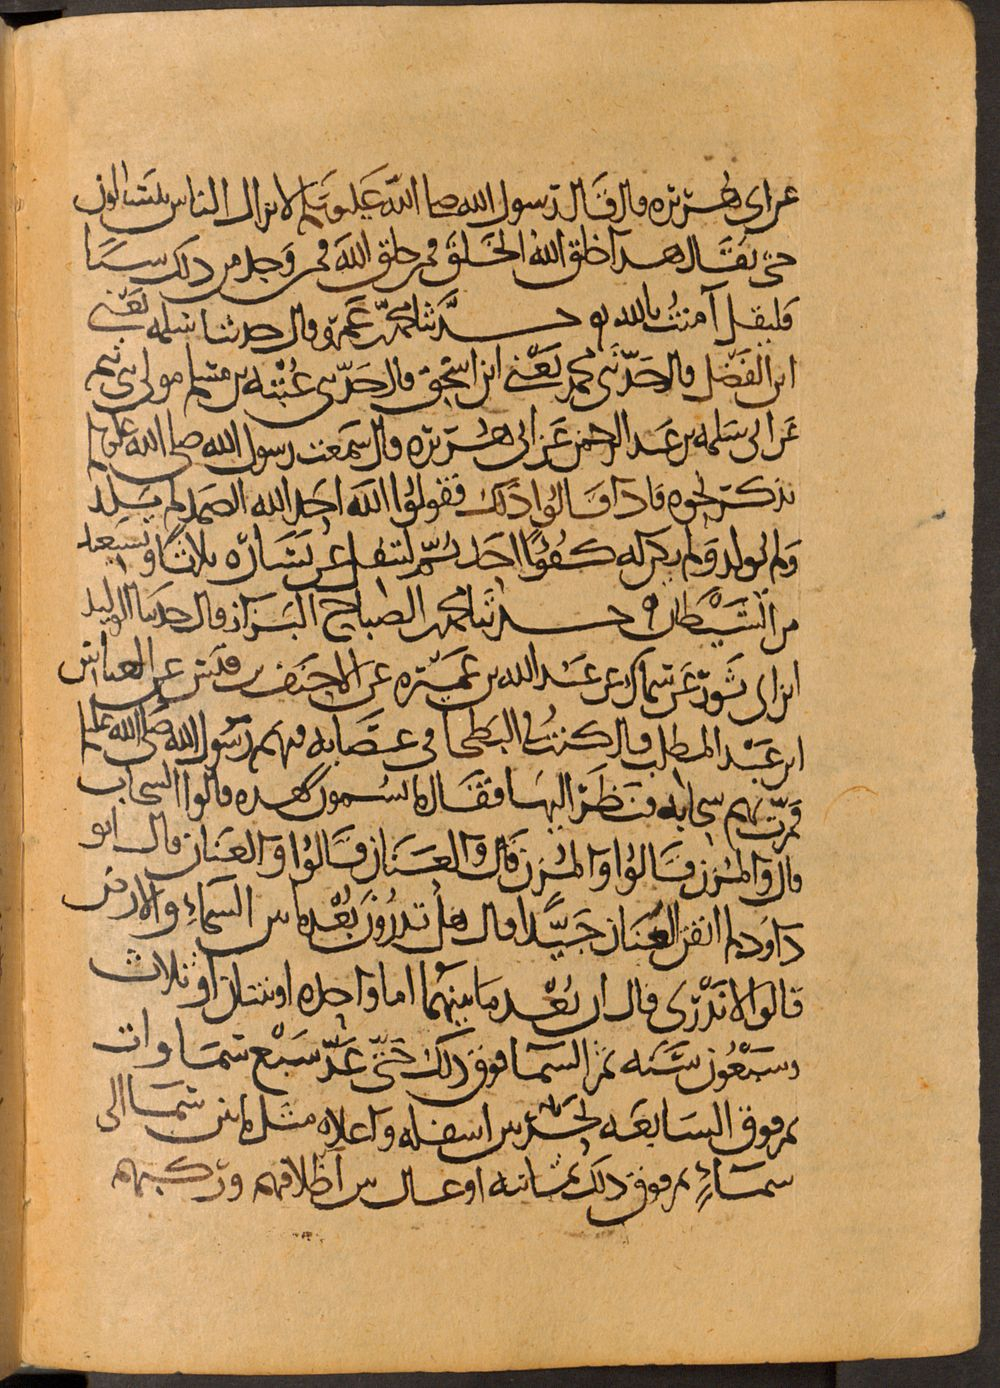 عن ابي هريرة قال قال رسول الله صلى الله عليه وسلم لا يزال الناس يتساءلون
حتى يقال هذا خلق الله الخلق فمن خلق الله فمن وجد من ذلك شيئا
فليقل آمنت بالله حدثنا محمد بن عمرو قال حدثنا سلمة يعني
ابن الفضل قال حدثني محمد يعني ابن اسحق قال حدثني عتبة بن مسلم مولى بني تيم
عن ابي سلمة بن عبد الرحمن عن ابي هريرة قال سمعت رسول الله صلى الله عليه وسلم
يذكر نحوه فاذا قالوا ذلك فقولوا الله احد الله الصمد لم يلد
ولم يولد ولم يكن له كفؤا احد ثم ليتفل عن يساره ثلاثا ويستعيذ
من الشيطان حدثنا محمد بن الصباح البزاز قال حدثنا الوليد
ابن ابي ثور عن سماك عن عبد الله بن عميرة عن الاحنف بن قيس عن العباس
ابن عبد المطلب قال كنت في البطحا في عصابة فيهم رسول الله صلى الله عليه وسلم
فمرت بهم سحابة فنظر اليها فقال ما تسمون هذه قالوا السحاب
قال والمزن قالوا والمزن قال والعنان قالوا والعنان قال ابو
داود لم اتقن العنان جيدا قال هل تدرون بعد ما بين السماء والارض
قالوا لا ندري قال ان بعد ما بينهما اما واحدة او ثنتان او ثلاث
وسبعون سنة ثم السما فوق ذلك حتى عد سبع سماوات
ثم فوق السابعة بحر بين اسفله واعلاه مثل ما بين سما الى
سماء ثم فوق ذلك ثمانية اوعال بين اظلافهم وركبهم